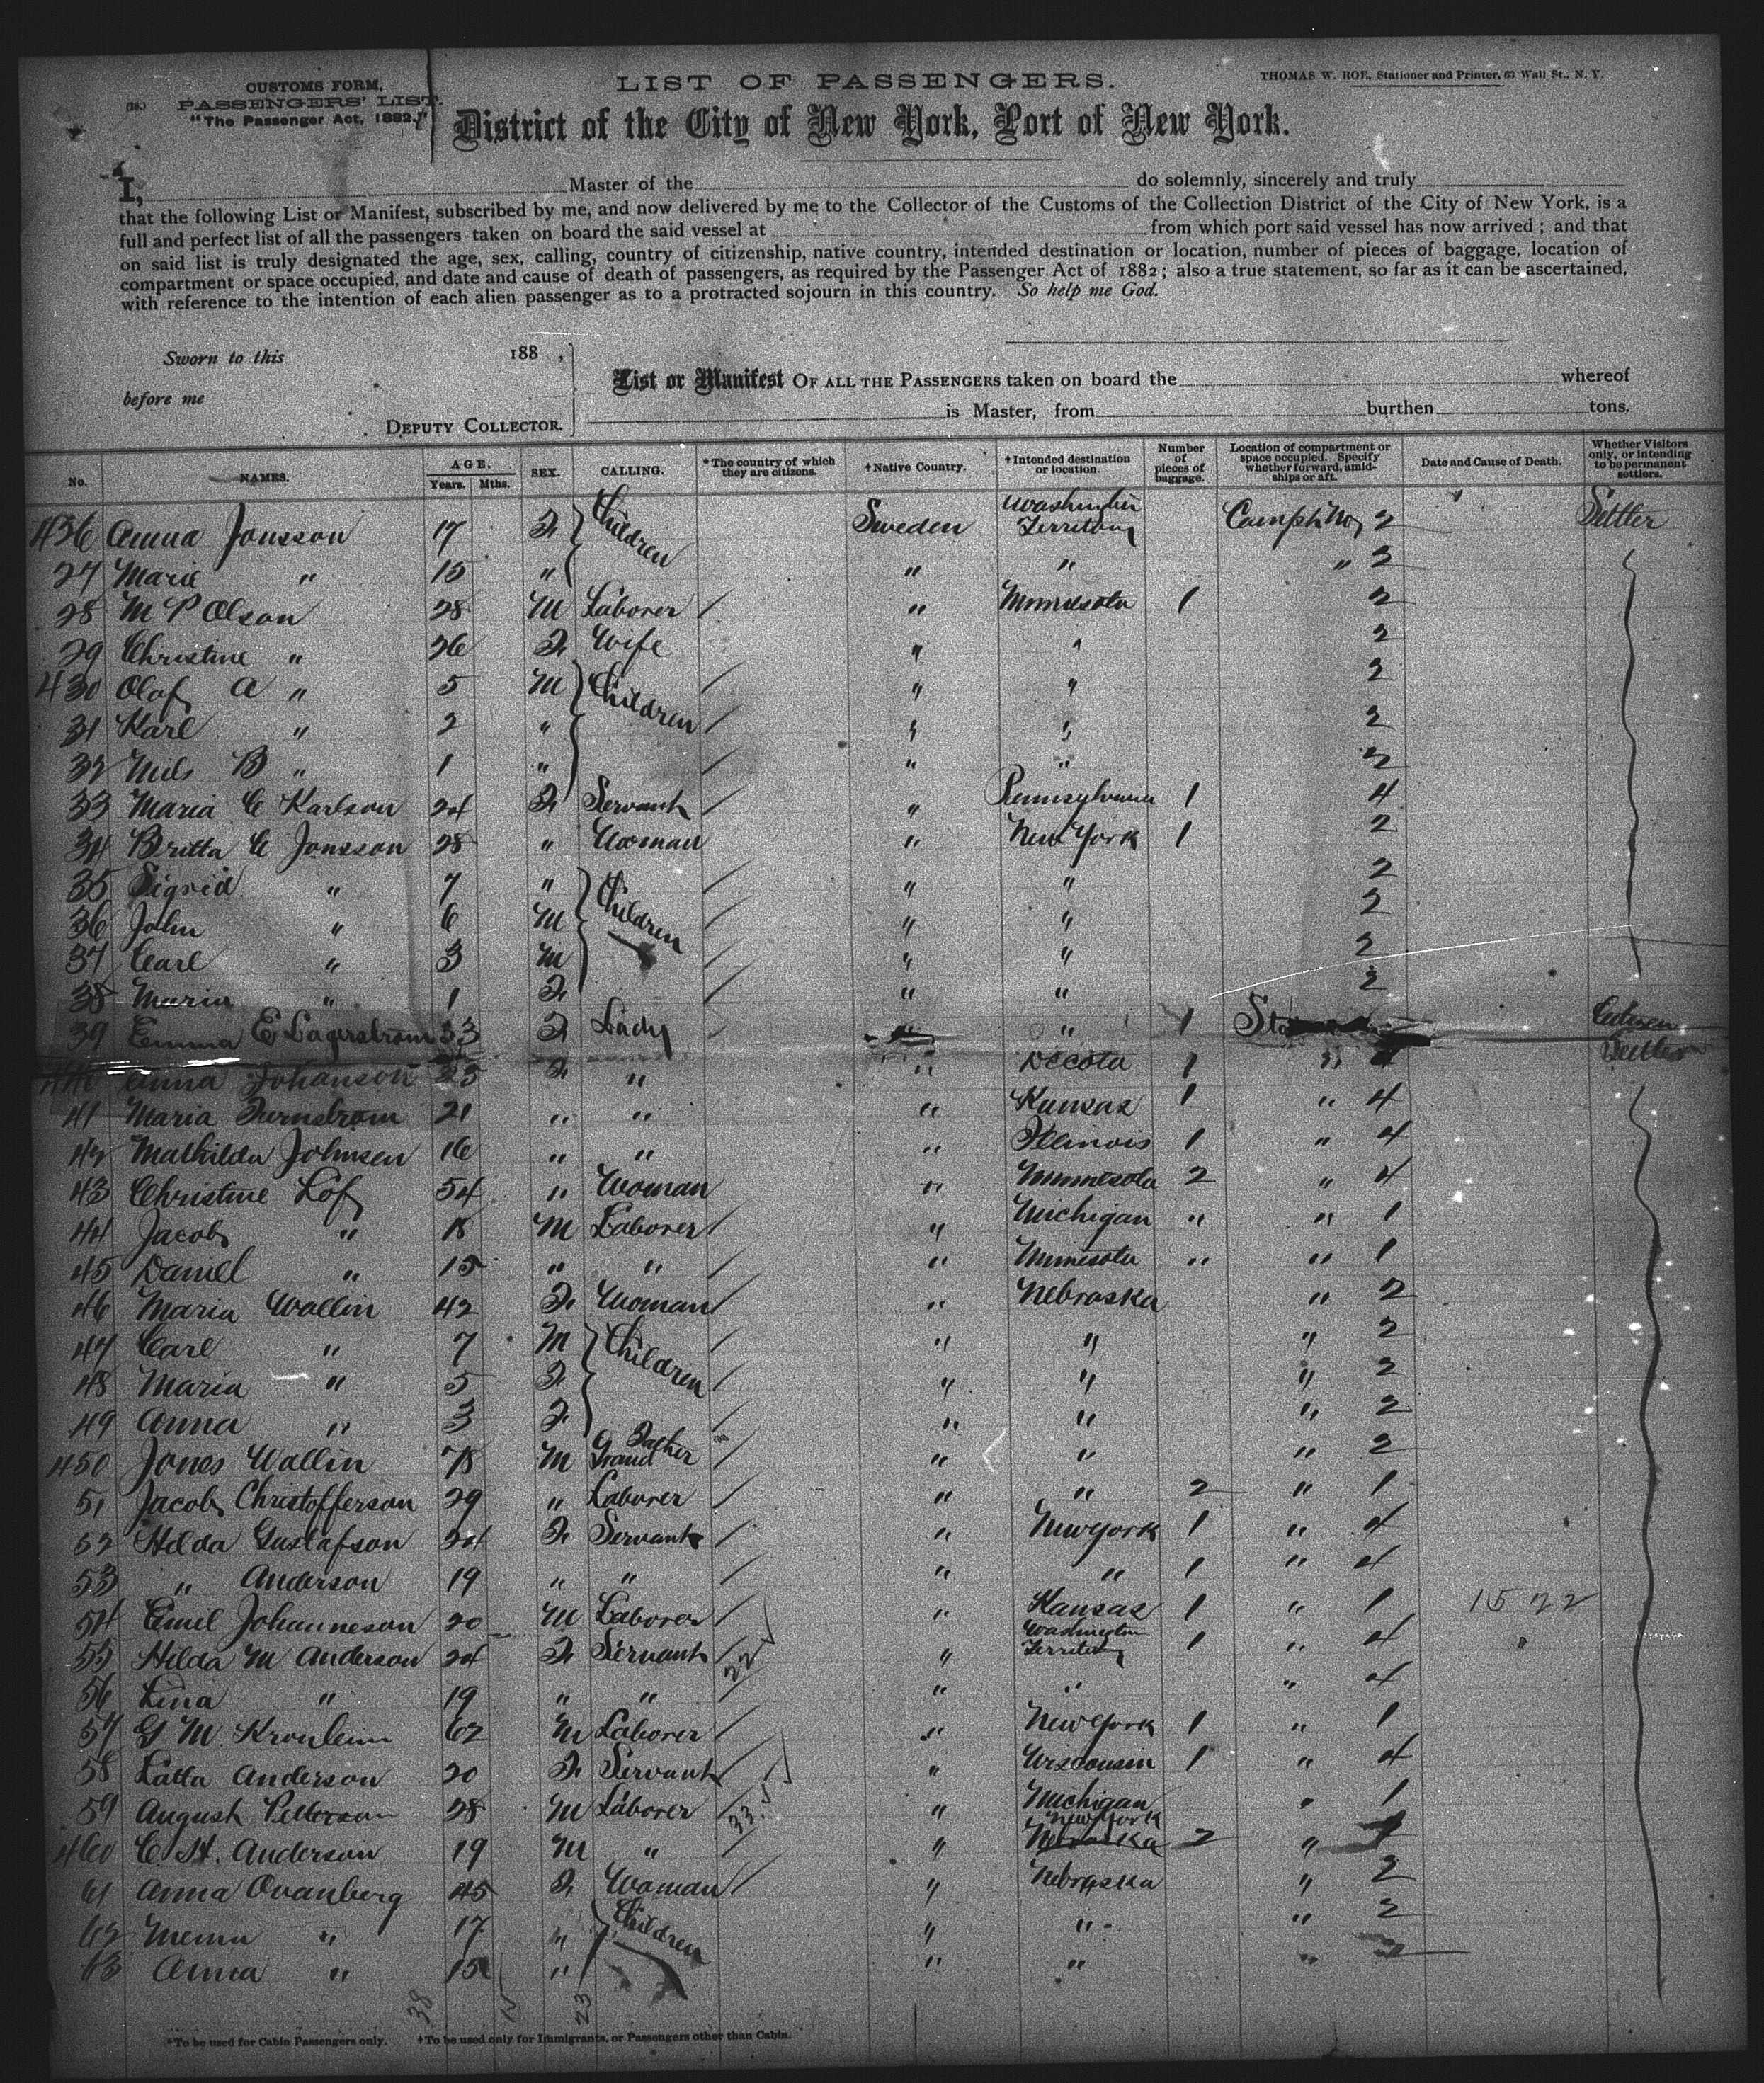 CUSTOMS FORM,
(18.) PASSENGERS' LIST.
"The Passenger Act, 1882."
LIST OF PASSENGERS.
THOMAS W. ROE, Stationer and Printer, 63 Wall St., N. Y.
District of the City of New York, Port of New York.
I, Master of the do solemnly, sincerely and truly
that the following List or Manifest, subscribed by me, and now delivered by me to the Collector of the Customs of the Collection District of the City of New York, is a
full and perfect list of all the passengers taken on board the said vessel at from which port said vessel has now arrived; and that
on said list is truly designated the age, sex, calling, country of citizenship, native country, intended destination or location, number of pieces of baggage, location of
compartment or space occupied, and date and cause of death of passengers, as required by the Passenger Act of 1882; also a true statement, so far as it can be ascertained,
with reference to the intention of each alien passenger as to a protracted sojourn in this country. So help me God.
Sworn to this 188 ,
before me
DEPUTY COLLECTOR.
List or Manifest OF ALL THE PASSENGERS taken on board the whereof
is Master, from burthen tons.
No. NAMES. AGE. Years. Mths. SEX. CALLING. *The country of which they are citizens. †Native Country. †Intended destination or location. Number of pieces of baggage. Location of compartment or space occupied. Specify whether forward, amidships or aft. Date and Cause of Death. Whether Visitors only, or intending to be permanent settlers.
436 Anna Jonsson 17 F Children Sweden Washington Territory 2 Settler
27 Marie " 15 " " " " 2
28 M P Olson 28 M Laborer / " Minnesota 1 2
29 Christine " 26 F Wife " " 2
430 Olof A " 5 M Children / " " 2
31 Karl " 2 " / " " 2
32 Nils B " 1 " / " " 2
33 Maria C Karlson 24 F Servant / " Pennsylvania 1 4
34 Britta C Jonsson 28 " Woman " New York 1 2
35 Sigrid " 7 " Children / " " 2
36 John " 6 M / " " 2
37 Carl " 3 M / " " 2
38 Maria " 1 F / " " 2
39 Emma E Lagerstrom 33 F Lady " 1 Citizen
440 Anna Johanson 25 F " " Decota 1 " 4 Settler
41 Maria Furnstrom 21 " " " Kansas 1 " 4
42 Mathilda Johnsen 16 " " " Illinois 1 " 4
43 Christine Löf 54 " Woman " Minnesota 2 " 4
44 Jacob " 18 M Laborer / " Michigan " " 1
45 Daniel " 15 " " / " Minnesota " " 1
46 Maria Wallin 42 F Woman / " Nebraska " 2
47 Carl " 7 M Children / " " " 2
48 Maria " 5 F / " " " 2
49 Anna " 3 F / " " " 2
450 Jones Wallin 78 M Grand Father / " " " 2
51 Jacob Christofferson 29 " Laborer / " " 2 " 1
52 Hilda Gustafson 24 F Servant / " New York 1 " 4
53 " Anderson 19 " " / " " 1 " 4
54 Emil Johanneson 20 M Laborer / " Kansas 1 " 1 1522
55 Hilda M Anderson 24 F Servant / 22 " Washington Territory 1 " 4
56 Lina " 19 " " / " " " 4
57 62 M Laborer / " New York 1 " 1
58 Latta Anderson 20 F Servant / " Wisconsin 1 " 4
59 August Petterson 28 M Laborer / 33 " Michigan " 1
460 C. H. Anderson 19 M " / " New York Nebraska 2 "
61 Anna Ovanberg 45 F Woman / " Nebraska " 2
62 " 17 " Children " " " 2
63 Anna " 15 " " " "
38 15 23
*To be used for Cabin Passengers only. †To be used only for Immigrants, or Passengers other than Cabin.